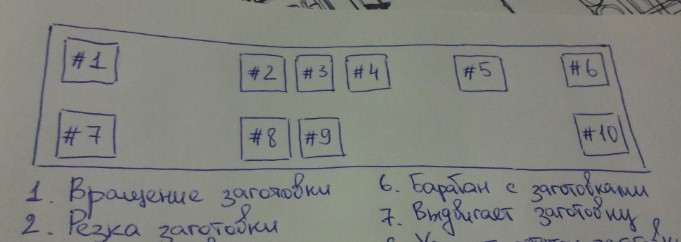 #1 #2 #3 #4 #5 #6
#7 #8 #9 #10
1. Вращение заготовки
2. Резка заготовки
6. Барабан с заготовками
7. Выдвигает заготовку